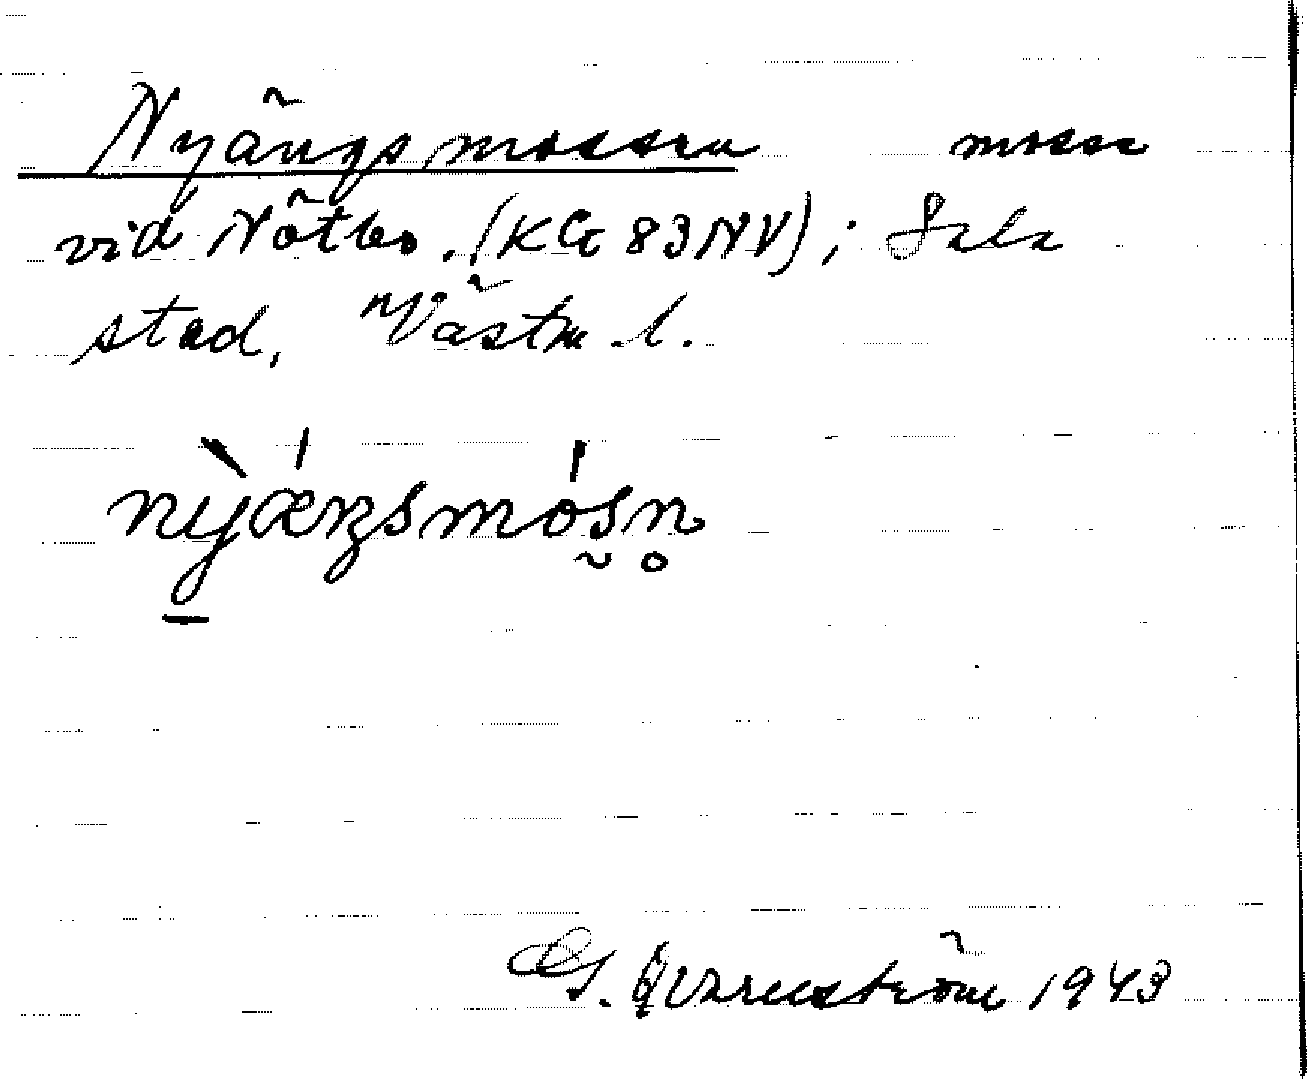 Nyängsmossen mosse
vid Nötbo. (KG 83NV); Sala
stad, Västm. l.
nỳǽŋsmósn̥
G. Qvarnström 1943